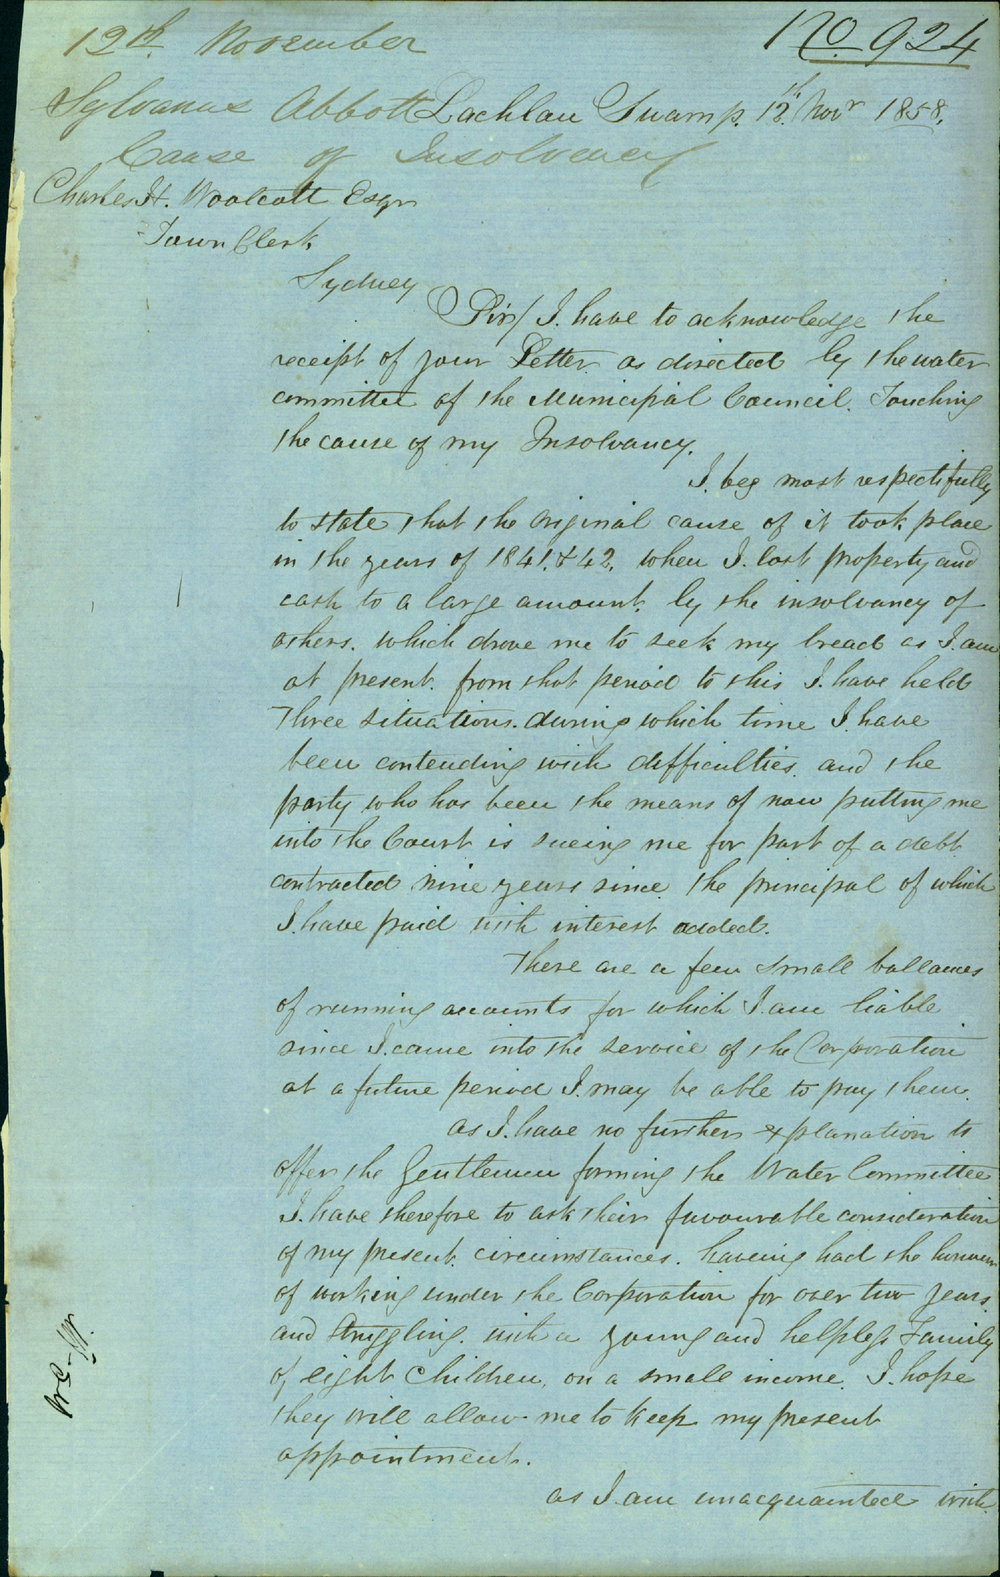 12th November
No. 924
Sylvanus Abbott
Lachlan Swamp. 12th Novr 1858.
Cause of Insolvency
Charles H. Woolcott Esqr
Town Clerk
Sydney
Sir/ I. have to acknowledge the
receipt of your Letter as directed by the water
committee of the Municipal Council. Touching
the cause of my Insolvancy.
I. beg most respectifully
to state that the original cause of it took place
in the years of 1841. & 42. when I. lost property and
cash to a large amount. by the insolvancy of
others. which drove me to seek my bread as I. am
at present. from that period to this I. have held
Three situations. during which time I. have
been contending with difficulties. and the
party who has been the means of now putting me
into the Court is sueing me for part of a debt
contracted nine years since the principal of which
I. have paid with interest added.
There are a few small ballances
of running accounts for which I. am liable
since I. came into the service of the Corporation
at a future period I. may be able to pay them.
as I. have no further explanation to
offer the Gentlemen forming the Water Committee
I. have therefore to ask their favourable consideration
of my present circumstances. haveing had the honour
of working under the Corporation for over two years.
and struggling. with a young and helpless Family
of eight Children, on a small income. I. hope
they will allow me to keep my present
appointment.
as I. am unacquainted with